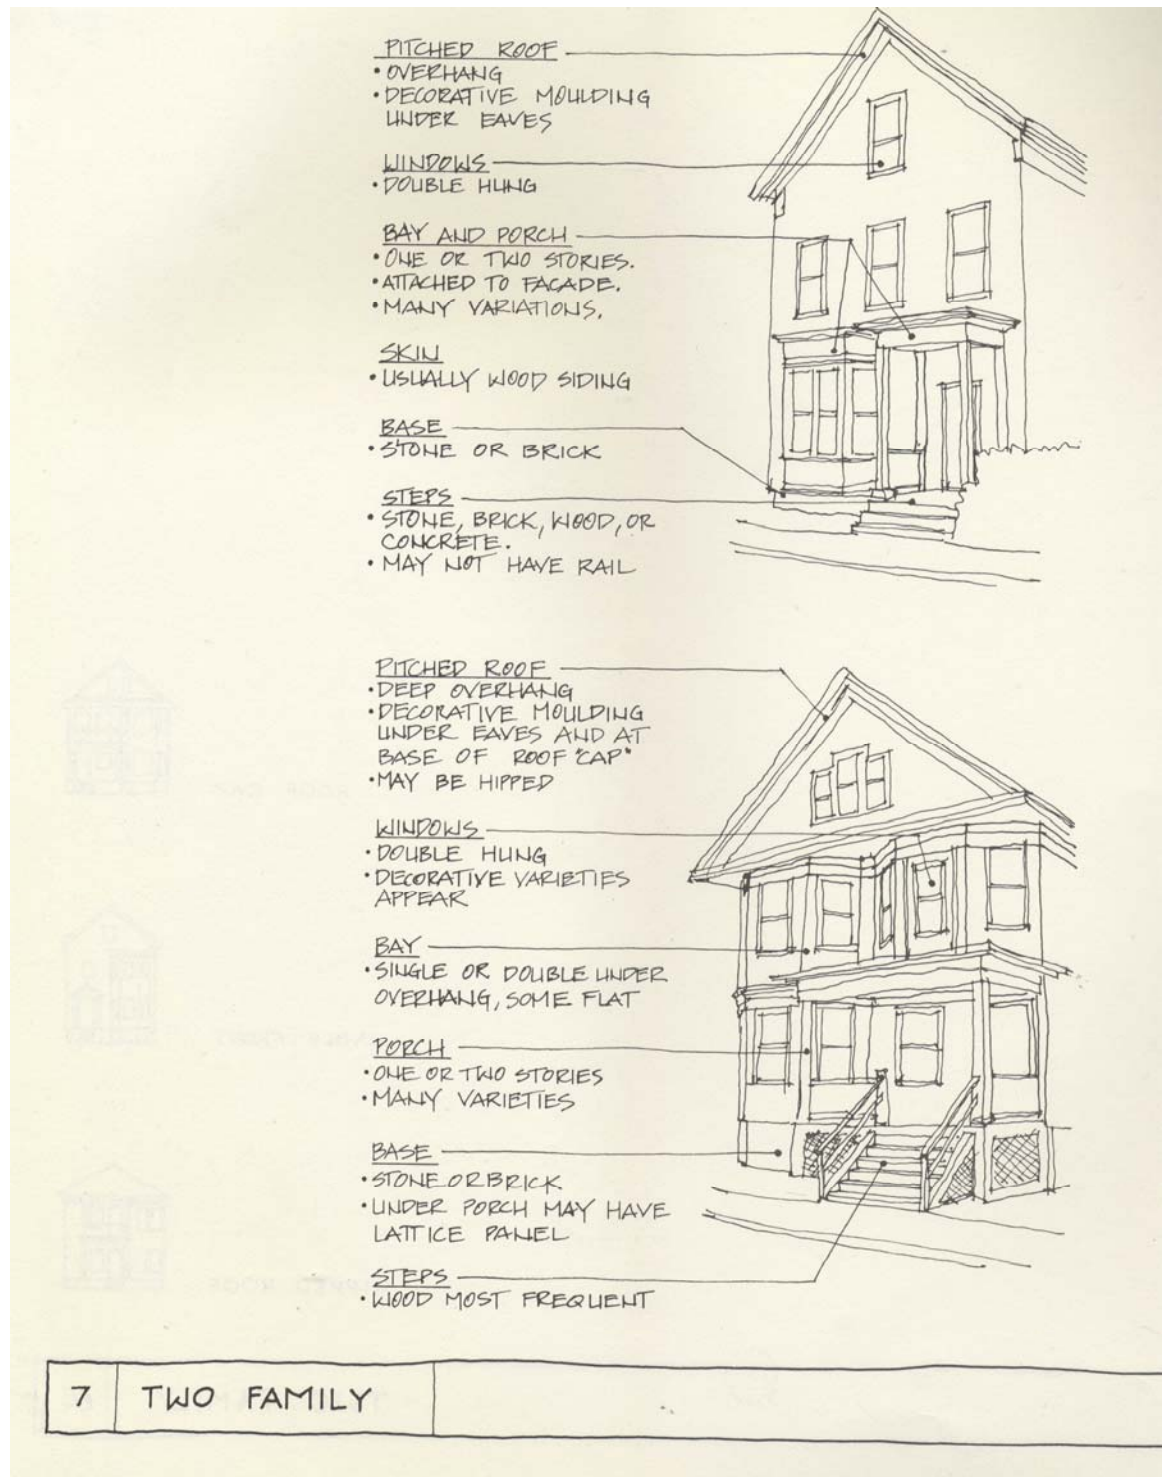 PITCHED ROOF
• OVERHANG
• DECORATIVE MOULDING
UNDER EAVES
WINDOWS
• DOUBLE HUNG
BAY AND PORCH
• ONE OR TWO STORIES.
• ATTACHED TO FACADE.
• MANY VARIATIONS.
SKIN
• USUALLY WOOD SIDING
BASE
• STONE OR BRICK
STEPS
• STONE, BRICK, WOOD, OR
CONCRETE.
• MAY NOT HAVE RAIL
PITCHED ROOF
• DEEP OVERHANG
• DECORATIVE MOULDING
UNDER EAVES AND AT
BASE OF ROOF "CAP"
• MAY BE HIPPED
WINDOWS
• DOUBLE HUNG
• DECORATIVE VARIETIES
APPEAR
BAY
• SINGLE OR DOUBLE UNDER
OVERHANG, SOME FLAT
PORCH
• ONE OR TWO STORIES
• MANY VARIETIES
BASE
• STONE OR BRICK
• UNDER PORCH MAY HAVE
LATTICE PANEL
STEPS
• WOOD MOST FREQUENT
7 TWO FAMILY